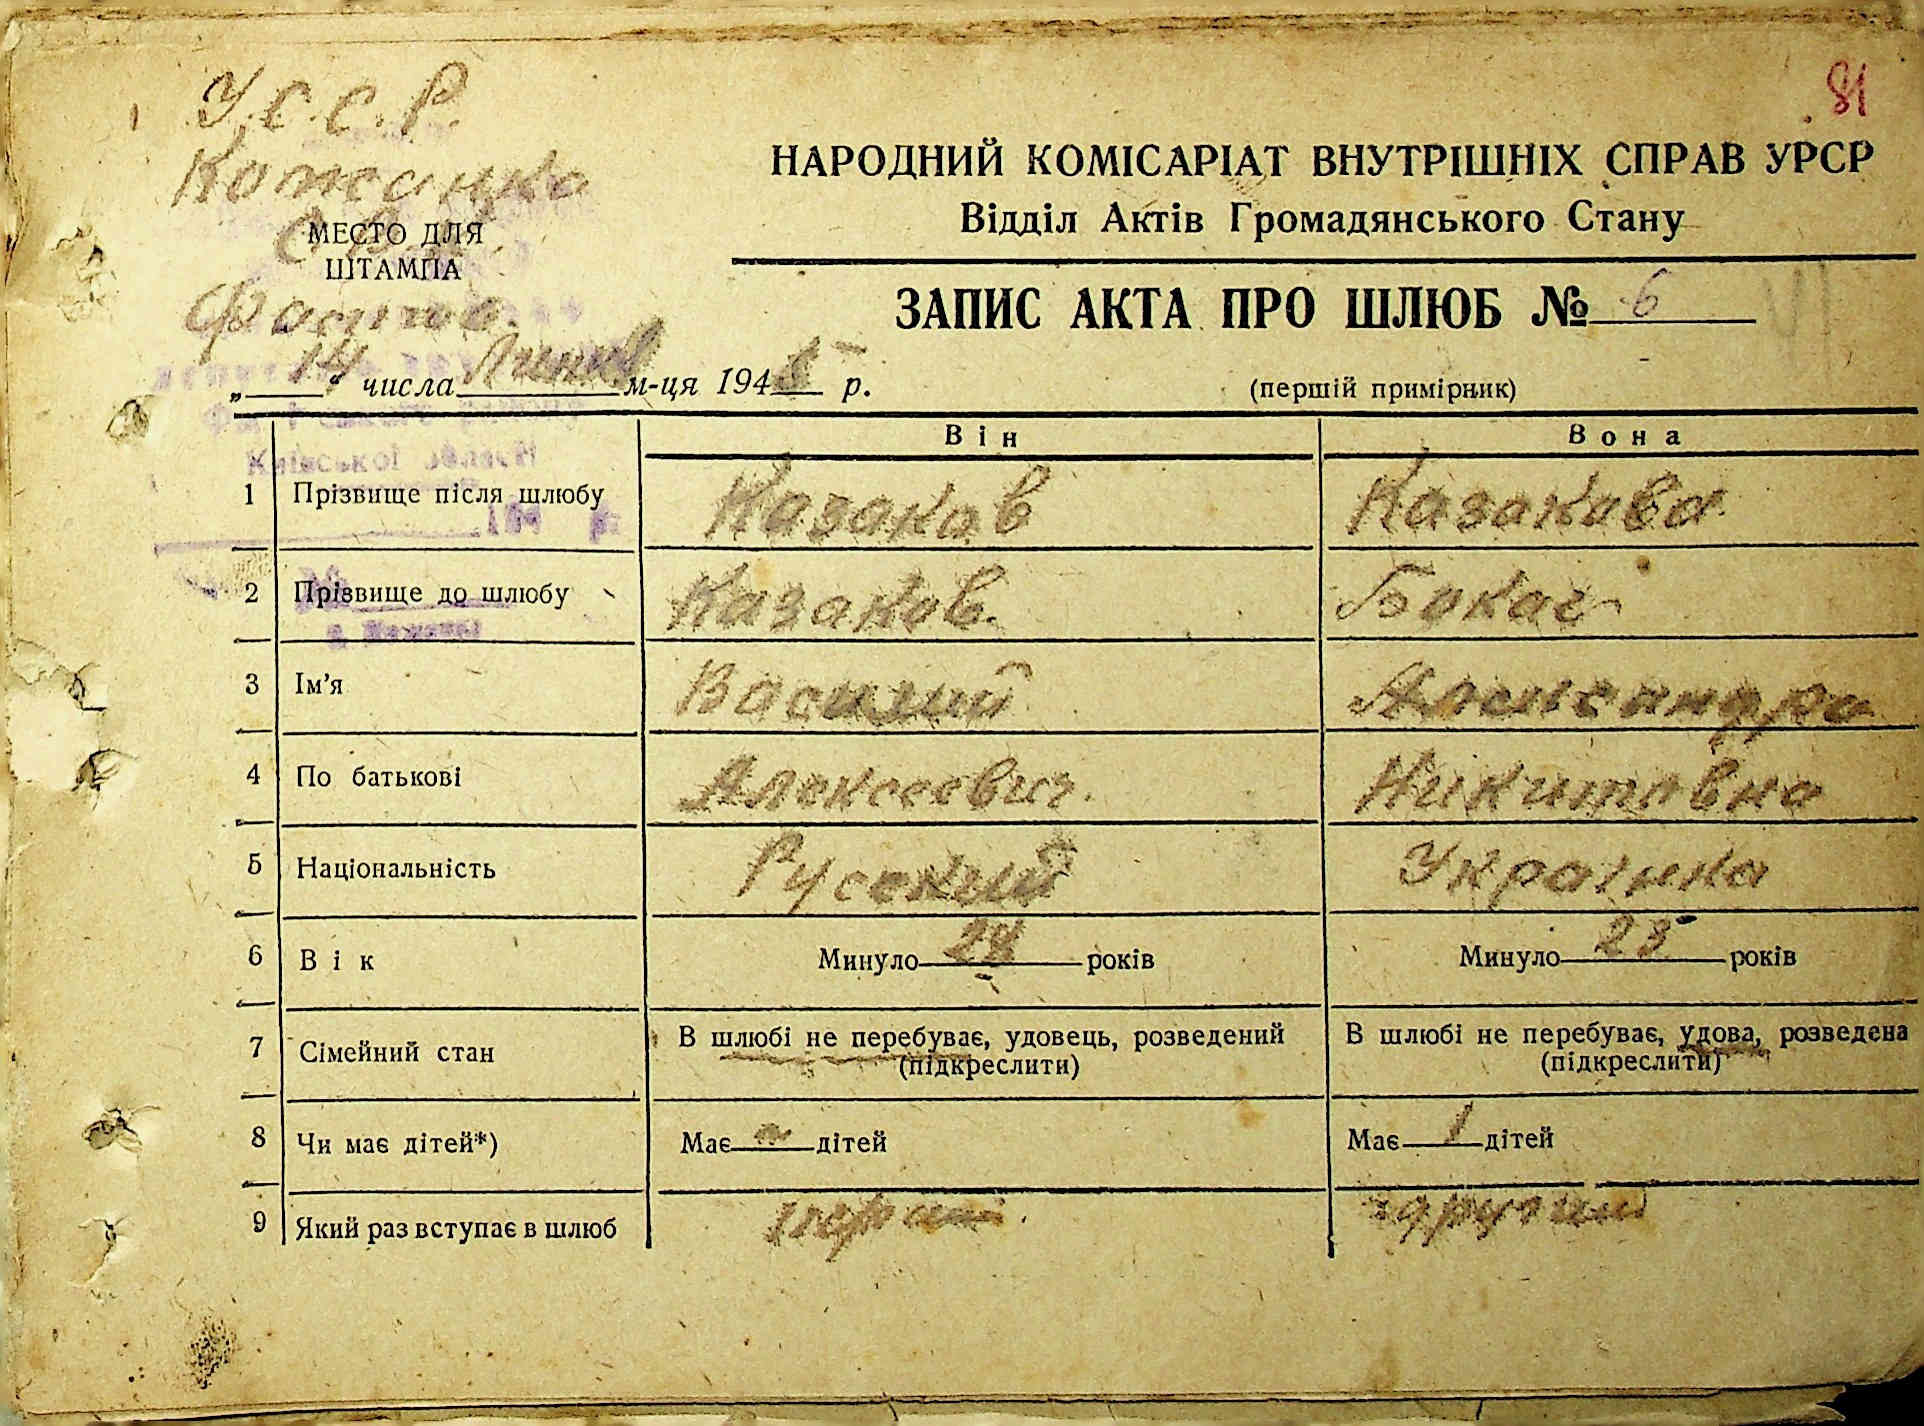 81
У.С.С.Р.
Кожанка
НАРОДНИЙ КОМІСАРІАТ ВНУТРІШНІХ СПРАВ УРСР
Відділ Актів Громадянського Стану
МЕСТО ДЛЯ
ШТАМПА
ЗАПИС АКТА ПРО ШЛЮБ № 6
„14“ числа м-ця 1945 р.
(першій примірник)
Київської області
Він Вона
1 Прізвище після шлюбу Казаков Казакова
2 Прізвище до шлюбу Казаков. Бокач
3 Ім'я Василий Александра
4 По батькові Алексеевич. Никитовна
5 Національність Русский Украінка
6 Вік Минуло 24 років Минуло 23 років
7 Сімейний стан В шлюбі не перебуває, удовець, розведений (підкреслити) В шлюбі не перебуває, удова, розведена (підкреслити)
8 Чи має дітей*) Має дітей Має 1 дітей
9 Який раз вступає в шлюб